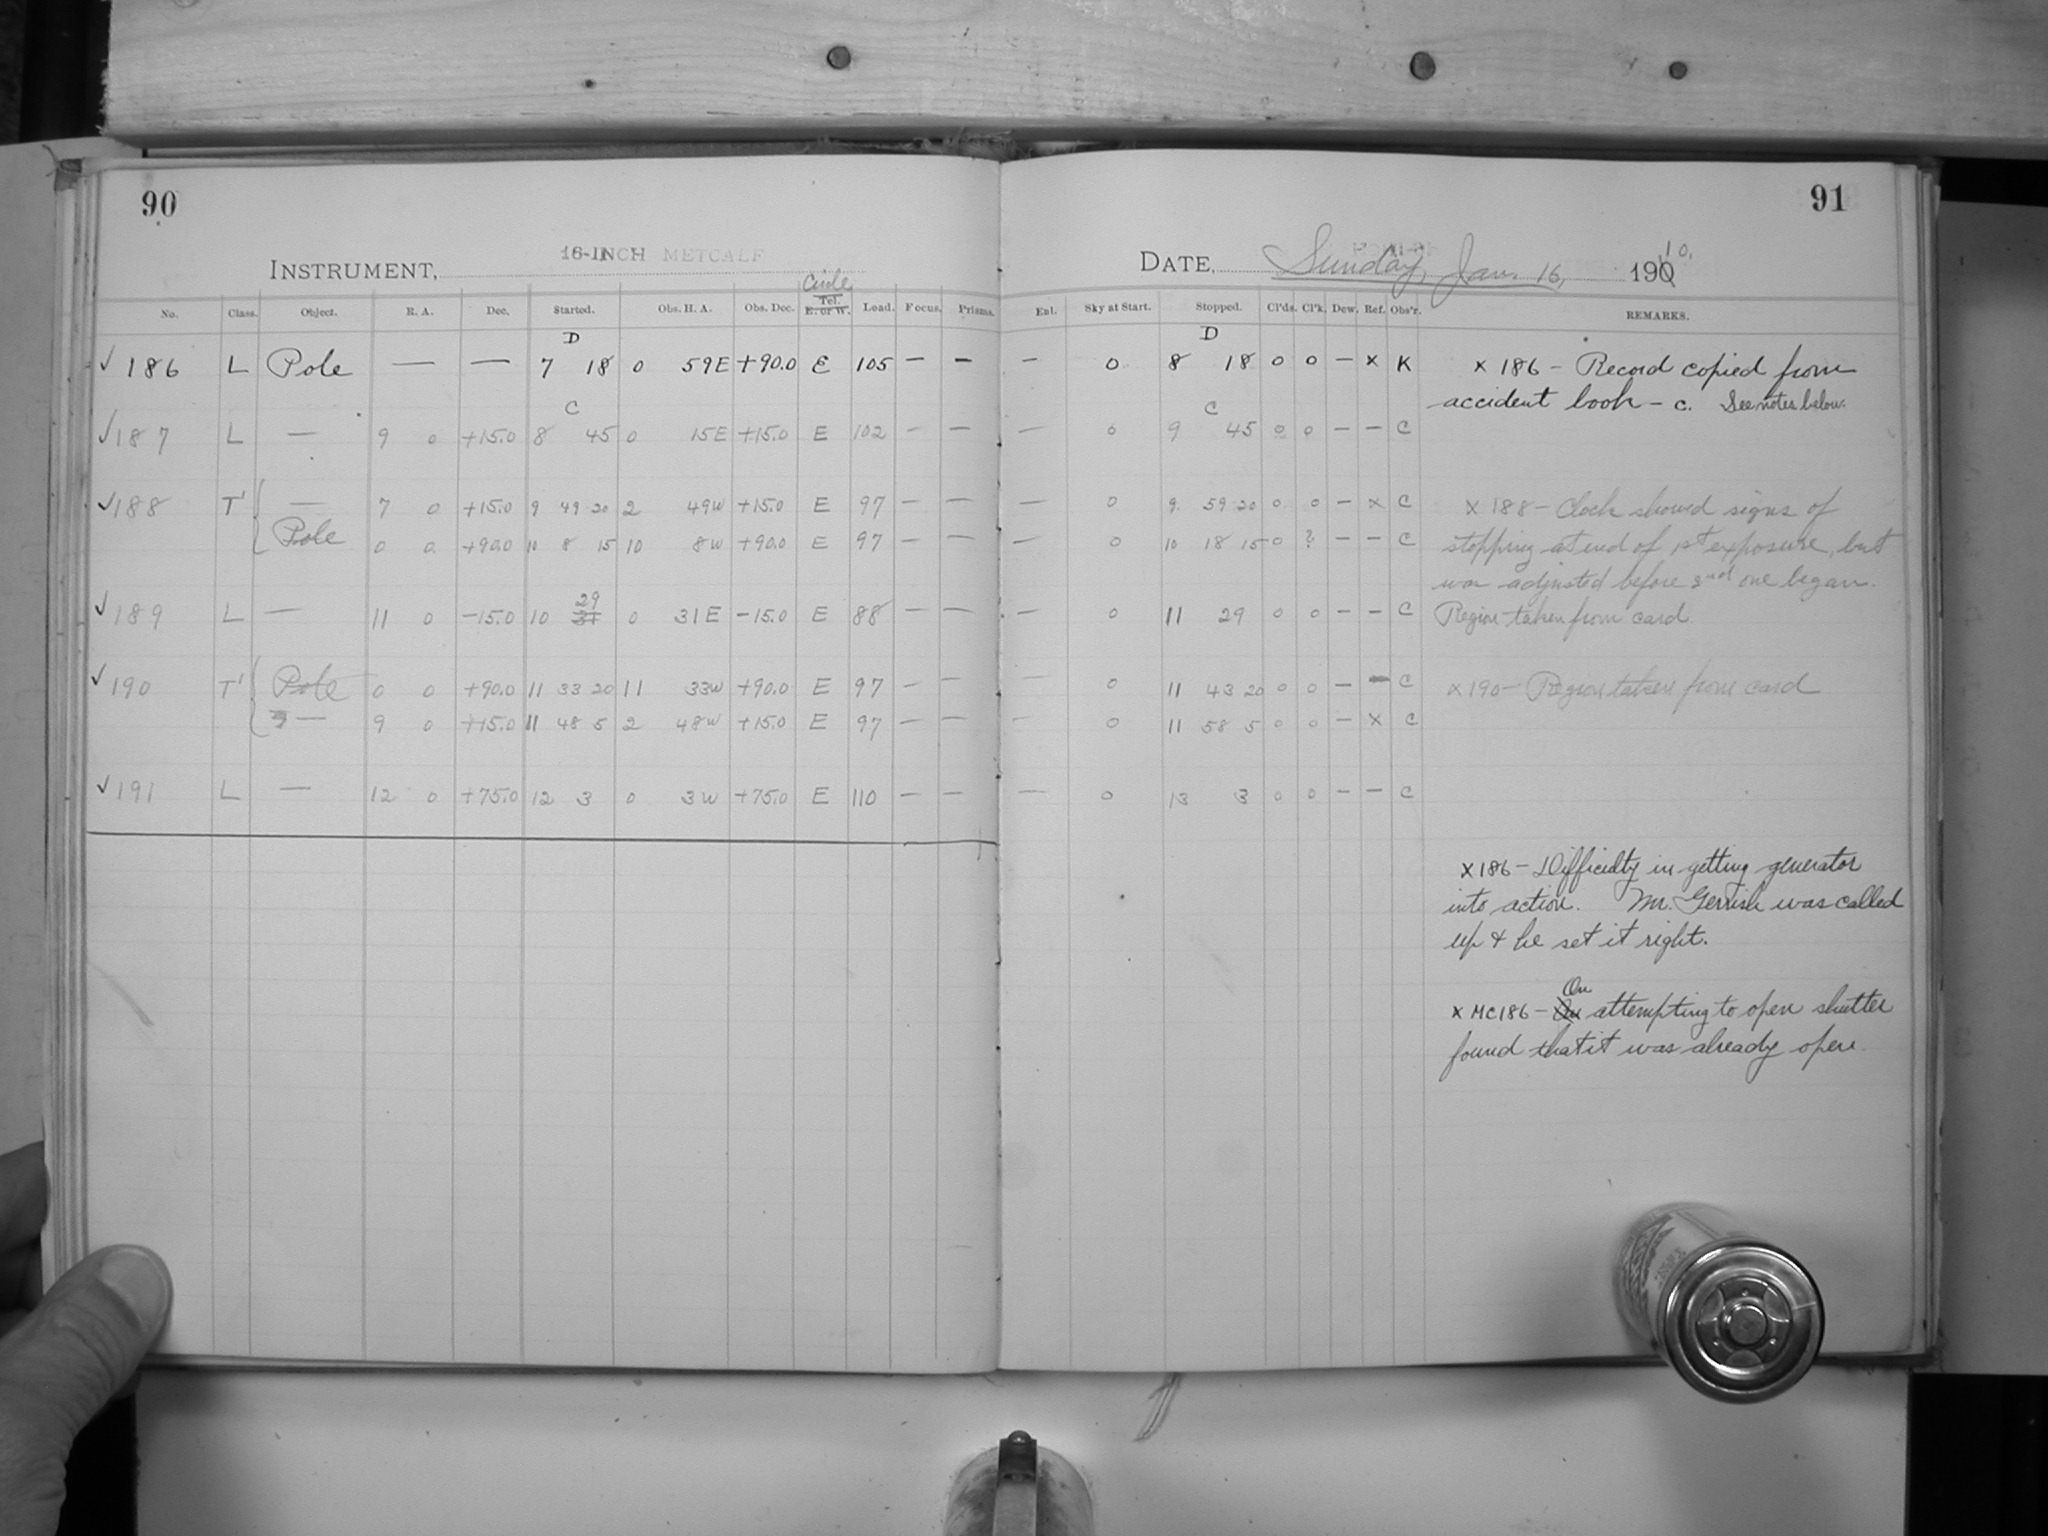 90
INSTRUMENT, 16-INCH METCALF
No. Class. Object. R. A. Dec. Started. Obs. H. A. Obs. Dec. Circle Tel. E. or W. Load. Focus. Prisms.
D
✓ 186 L Pole — — 7 18 0 59E +90.0 E 105 — —
C
✓ 187 L — 9 0 +15.0 8 45 0 15E +15.0 E 102 — —
✓ 188 T' — 7 0 +15.0 9 49 20 2 49W +15.0 E 97 — —
Pole 0 0 +90.0 10 8 15 10 8W +90.0 E 97 — —
29
✓ 189 L — 11 0 -15.0 10 31 0 31E -15.0 E 88 — —
✓ 190 T' Pole 0 0 +90.0 11 33 20 11 33W +90.0 E 97 — —
— 9 0 +15.0 11 48 5 2 48W +15.0 E 97 — —
✓ 191 L — 12 0 +75.0 12 3 0 3W +75.0 E 110 — —
91
DATE, Sunday, Jan. 16, 1910.
Ent. Sky at Start. Stopped. Cl'ds. Cl'k. Dew. Ref. Obs'r. REMARKS.
D
— 0 8 18 0 0 — x K x 186 — Record copied from
accident book — c. See notes below.
C
— 0 9 45 0 0 — — C
— 0 9 59 20 0 0 — x C x 188 — Clock showed signs of
— 0 10 18 15 0 ? — — C stopping at end of 1st exposure, but
was adjusted before 2nd one began.
— 0 11 29 0 0 — — C Region taken from card.
— 0 11 43 20 0 0 — — C x190 — Region taken from card
— 0 11 58 5 0 0 — x C
— 0 13 3 0 0 — — C
x186 — Difficulty in getting generator
into action. Mr. Gerrish was called
up & he set it right.
On
x MC186 — On attempting to open shutter
found that it was already open.